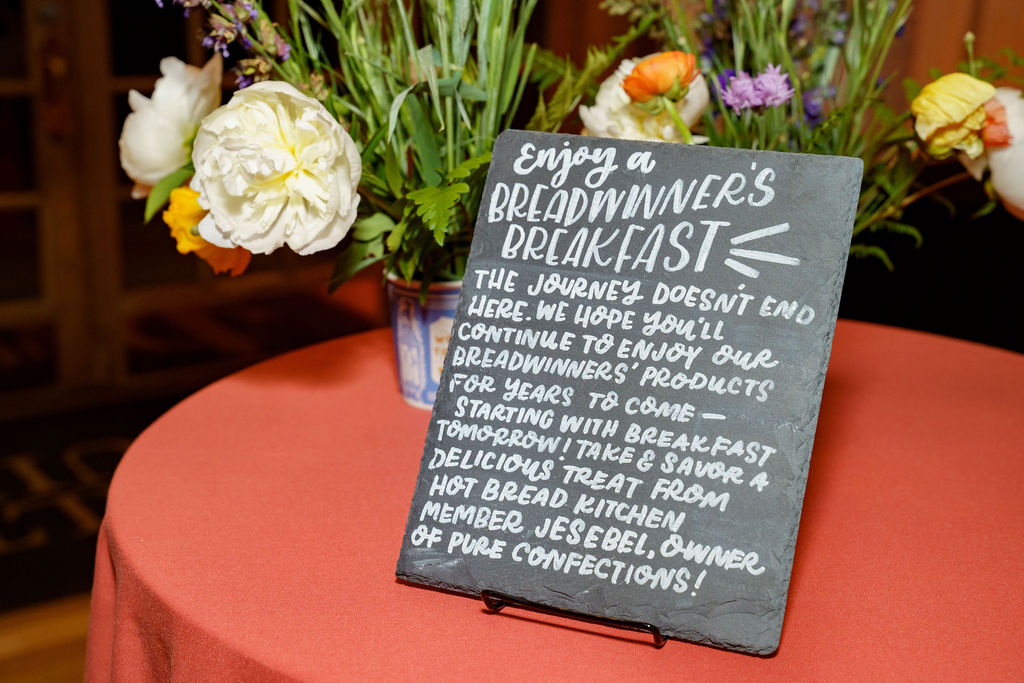 Enjoy a
BREADWINNER'S
BREAKFAST
THE JOURNEY DOESN'T END
HERE. WE HOPE YOU'LL
CONTINUE TO ENJOY OUR
BREADWINNERS' PRODUCTS
FOR YEARS TO COME —
STARTING WITH BREAKFAST
TOMORROW! TAKE & SAVOR A
DELICIOUS TREAT FROM
HOT BREAD KITCHEN
MEMBER JESEBEL, OWNER
OF PURE CONFECTIONS!